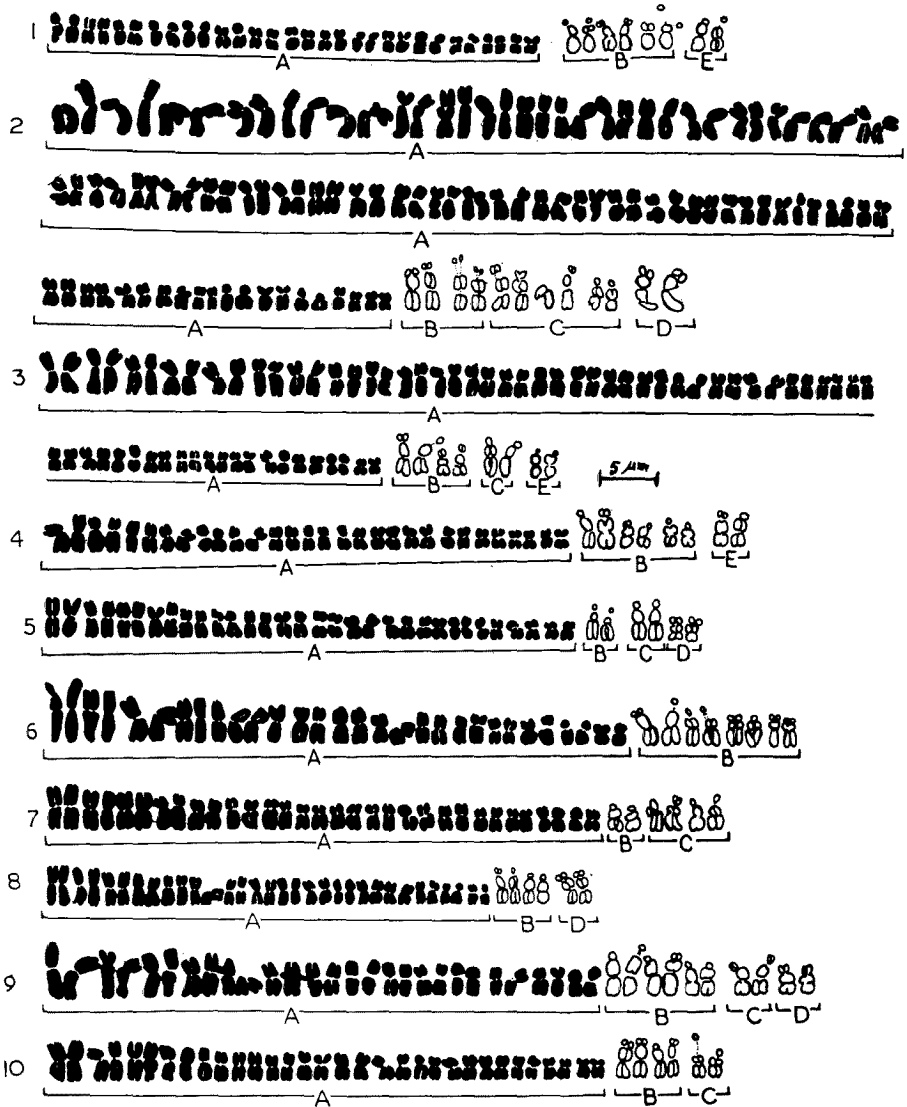 1 A B E
2 A
A
A B C D
3 A
A B C E 5 μm
4 A B E
5 A B C D
6 A B
7 A B C
8 A B D
9 A B C D
10 A B C